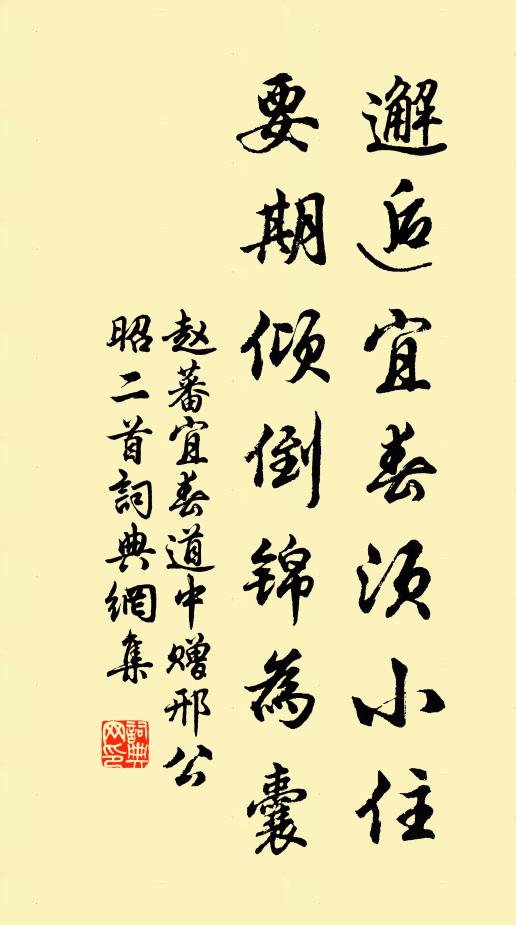 邂逅宜春须小住
要期倾倒锦为囊
赵蕃宜春道中赠邢公
昭二首詞典網集
詞典網印